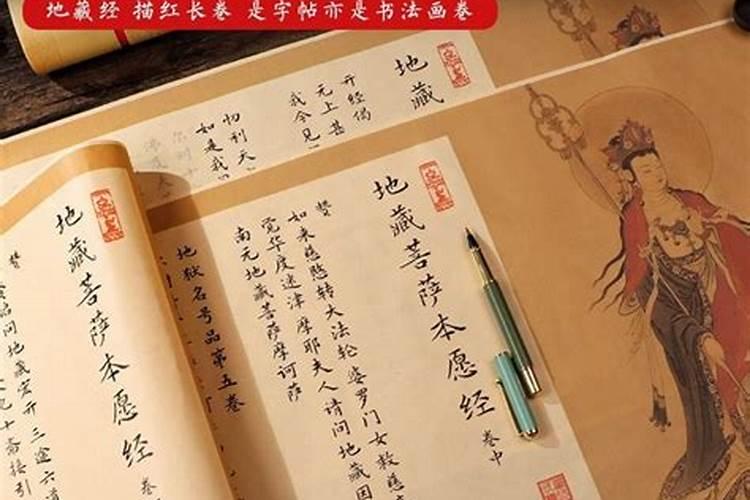 地藏经 描红长卷 是字帖亦是书法画卷
地藏
开经偈
无上甚
我今见
忉利天
如是我
地藏菩萨本愿经 卷中
赞
如来慈愍转大法轮 婆罗门女救慈
觉华度迷津 摩耶夫人请问地藏因
南无地藏菩萨摩诃萨
地狱名号品第五卷
地藏菩萨本愿经 卷
赞
品问地藏宏开 三途六道
十斋接引